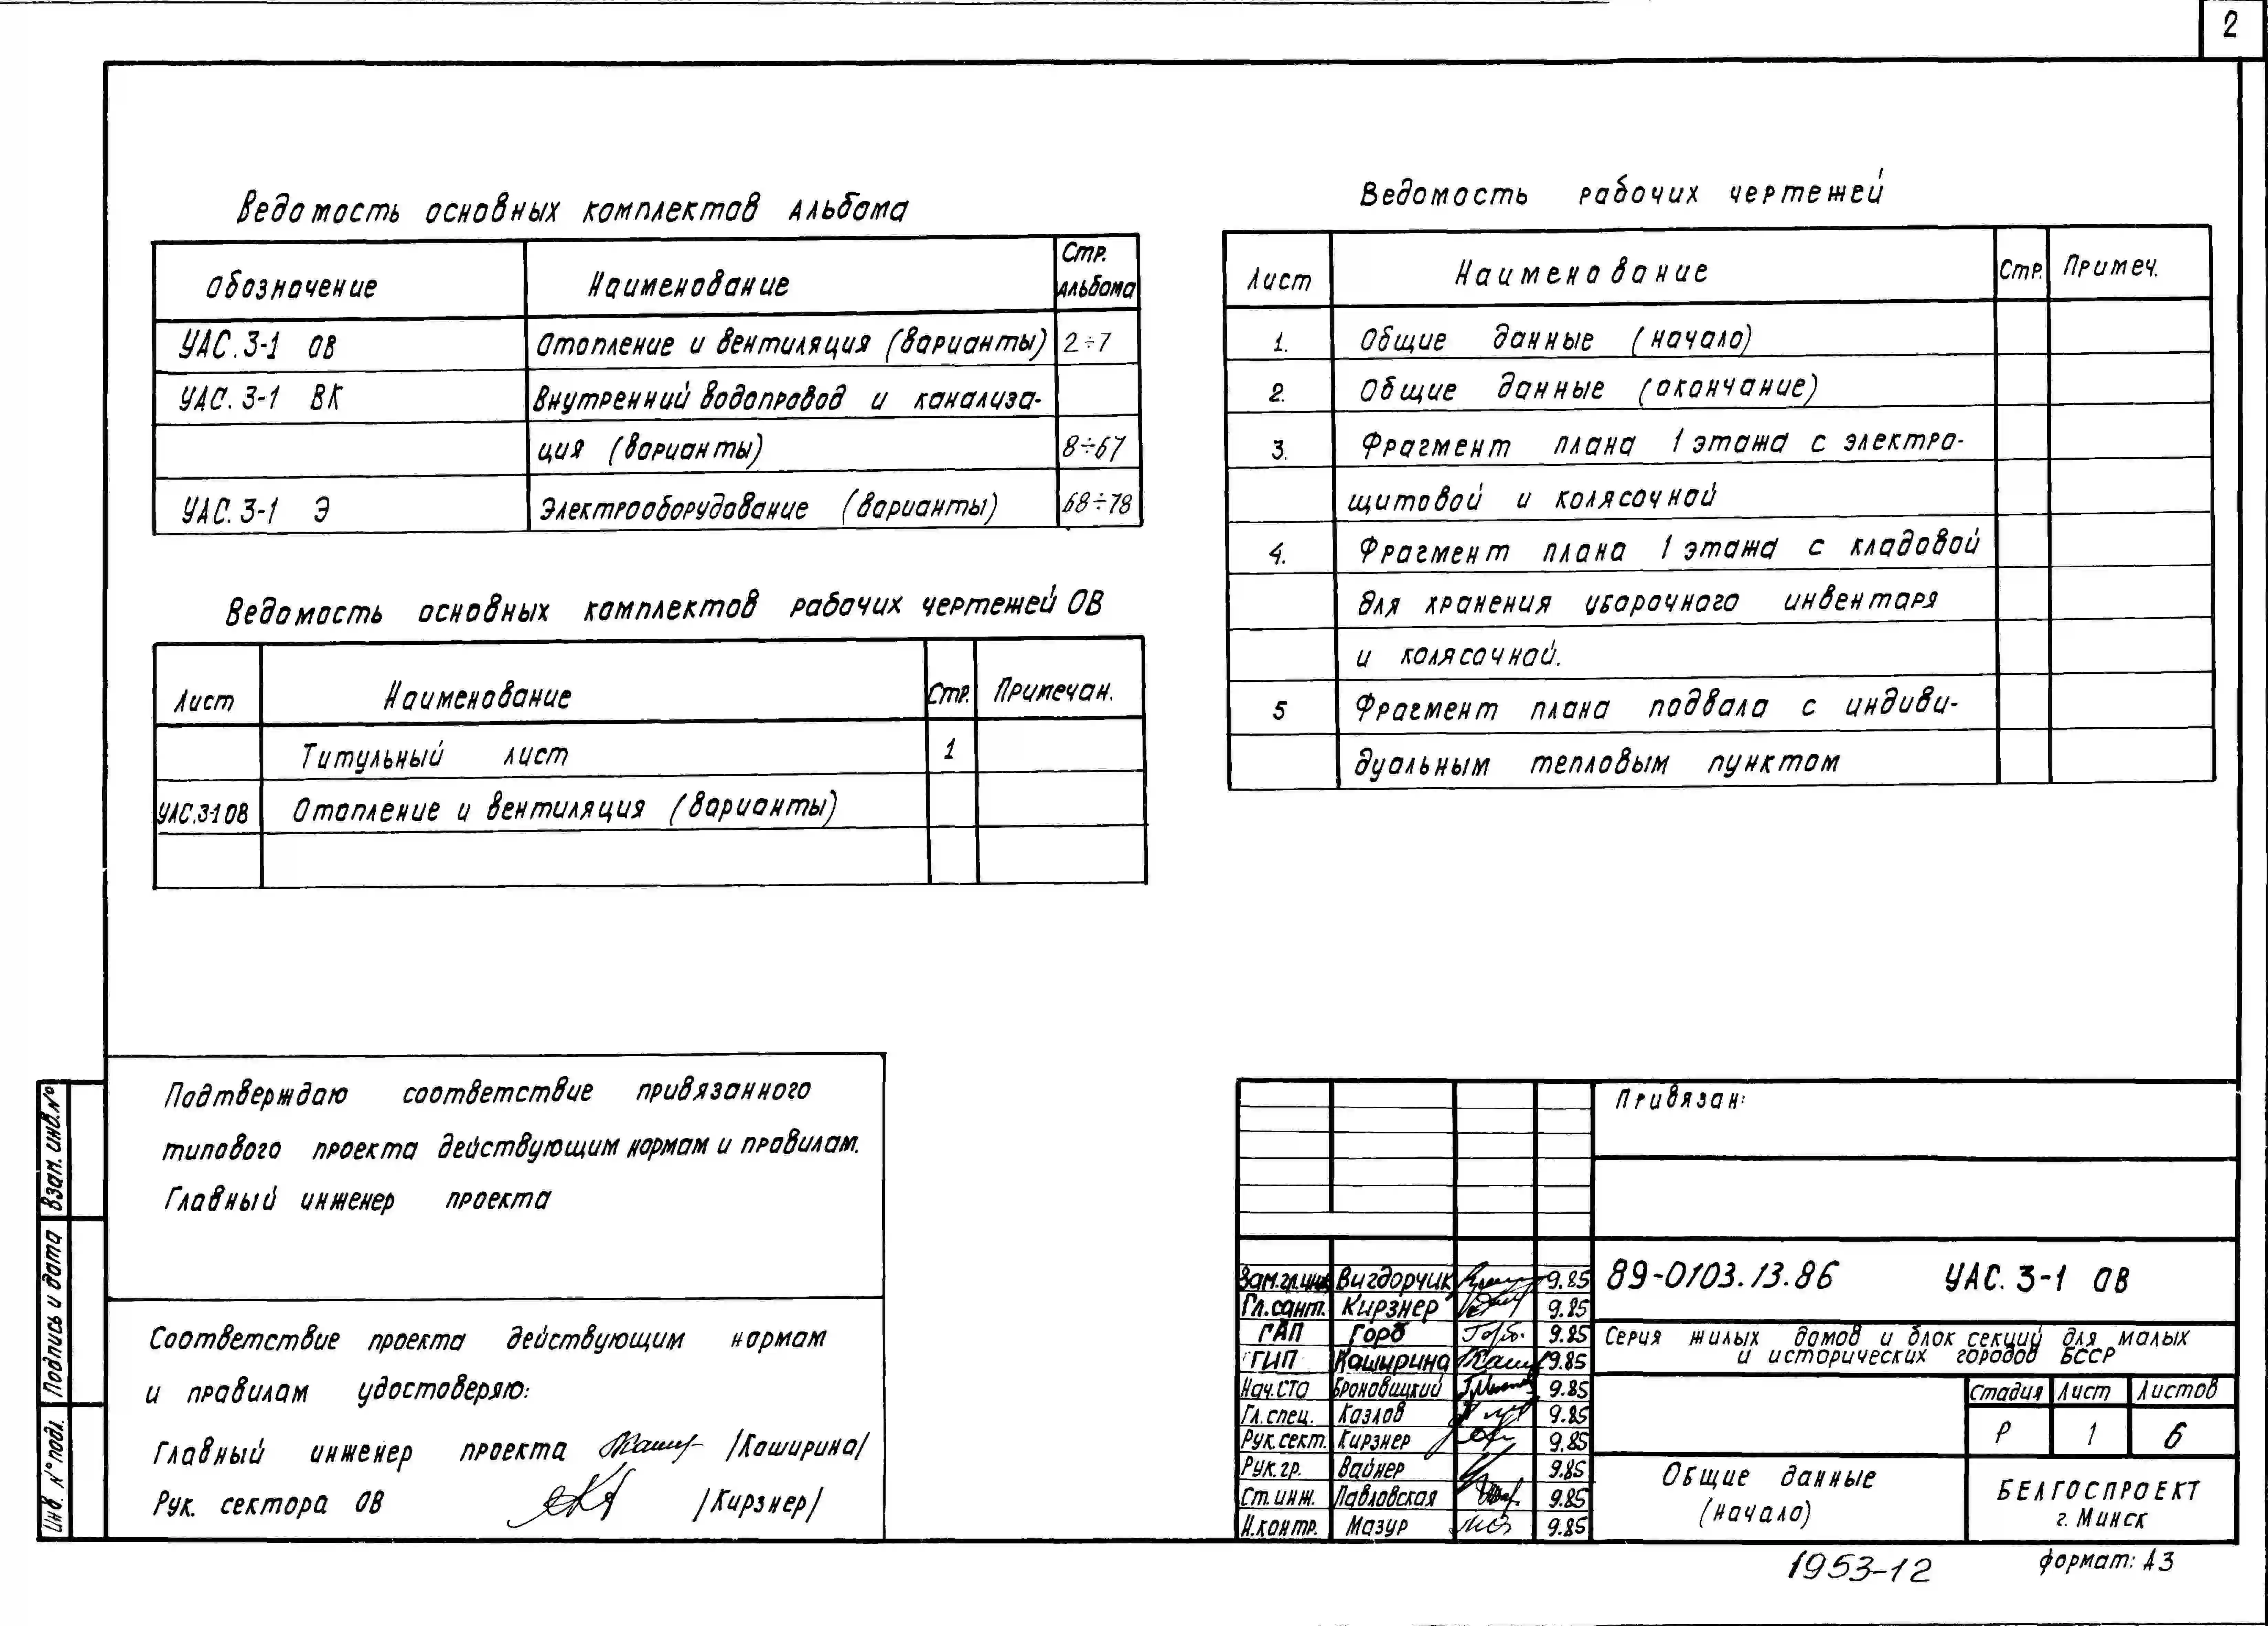 2
Ведомость основных комплектов альбома
Обозначение Наименование Стр. альбома
УАС.3-1 ОВ Отопление и вентиляция (варианты) 2÷7
УАС.3-1 ВК Внутренний водопровод и канализа-
ция (варианты) 8÷67
УАС.3-1 Э Электрооборудование (варианты) 68÷78
Ведомость основных комплектов рабочих чертежей ОВ
Лист Наименование Стр. Примечан.
Титульный лист 1
УАС.3-1 ОВ Отопление и вентиляция (варианты)
Ведомость рабочих чертежей
Лист Наименование Стр. Примеч.
1. Общие данные (начало)
2. Общие данные (окончание)
3. Фрагмент плана 1 этажа с электро-
щитовой и колясочной
4. Фрагмент плана 1 этажа с кладовой
для хранения уборочного инвентаря
и колясочной.
5 Фрагмент плана подвала с индиви-
дуальным тепловым пунктом
Подтверждаю соответствие привязанного
типового проекта действующим нормам и правилам.
Главный инженер проекта
Соответствие проекта действующим нормам
и правилам удостоверяю:
Главный инженер проекта /Каширина/
Рук. сектора ОВ /Кирзнер/
Инв. № подл. Подпись и дата Взам. инв. №
Привязан:
Зам.гл.инж. Вигдорчик 9.85
Гл.сант. Кирзнер 9.85
ГАП Горб 9.85
ГИП Каширина 9.85
Нач.СТО Броновицкий 9.85
Гл.спец. Казлов 9.85
Рук.сект. Кирзнер 9.85
Рук.гр. Вайнер 9.85
Ст.инж. Павловская 9.85
Н.контр. Мазур 9.85
89-0103.13.86 УАС.3-1 ОВ
Серия жилых домов и блок секций для малых
и исторических городов БССР
Стадия Лист Листов
Р 1 6
Общие данные
(начало)
БЕЛГОСПРОЕКТ
г. Минск
1953-12
формат: А3